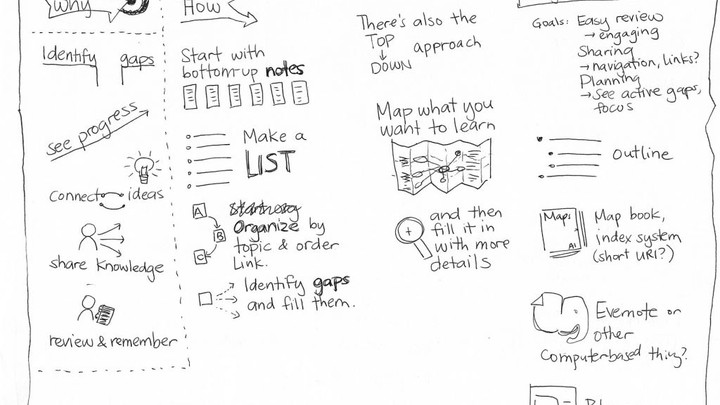 Why
Identify gaps
see progress
Connect ideas
share knowledge
review & remember
How
Start with
bottom-up notes
Make a
LIST
A
B
C
Organize by
topic & order
Link.
Identify gaps
and fill them.
There's also the
TOP
↓
DOWN
approach
Map what you
want to learn
and then
fill it in
with more
details
Goals: Easy review
→ engaging
Sharing
→ navigation, links?
Planning
→ See active gaps,
focus
Outline
Map:
A1
Map book,
index system
(short URI?)
Evernote or
other
Computerbased thing?